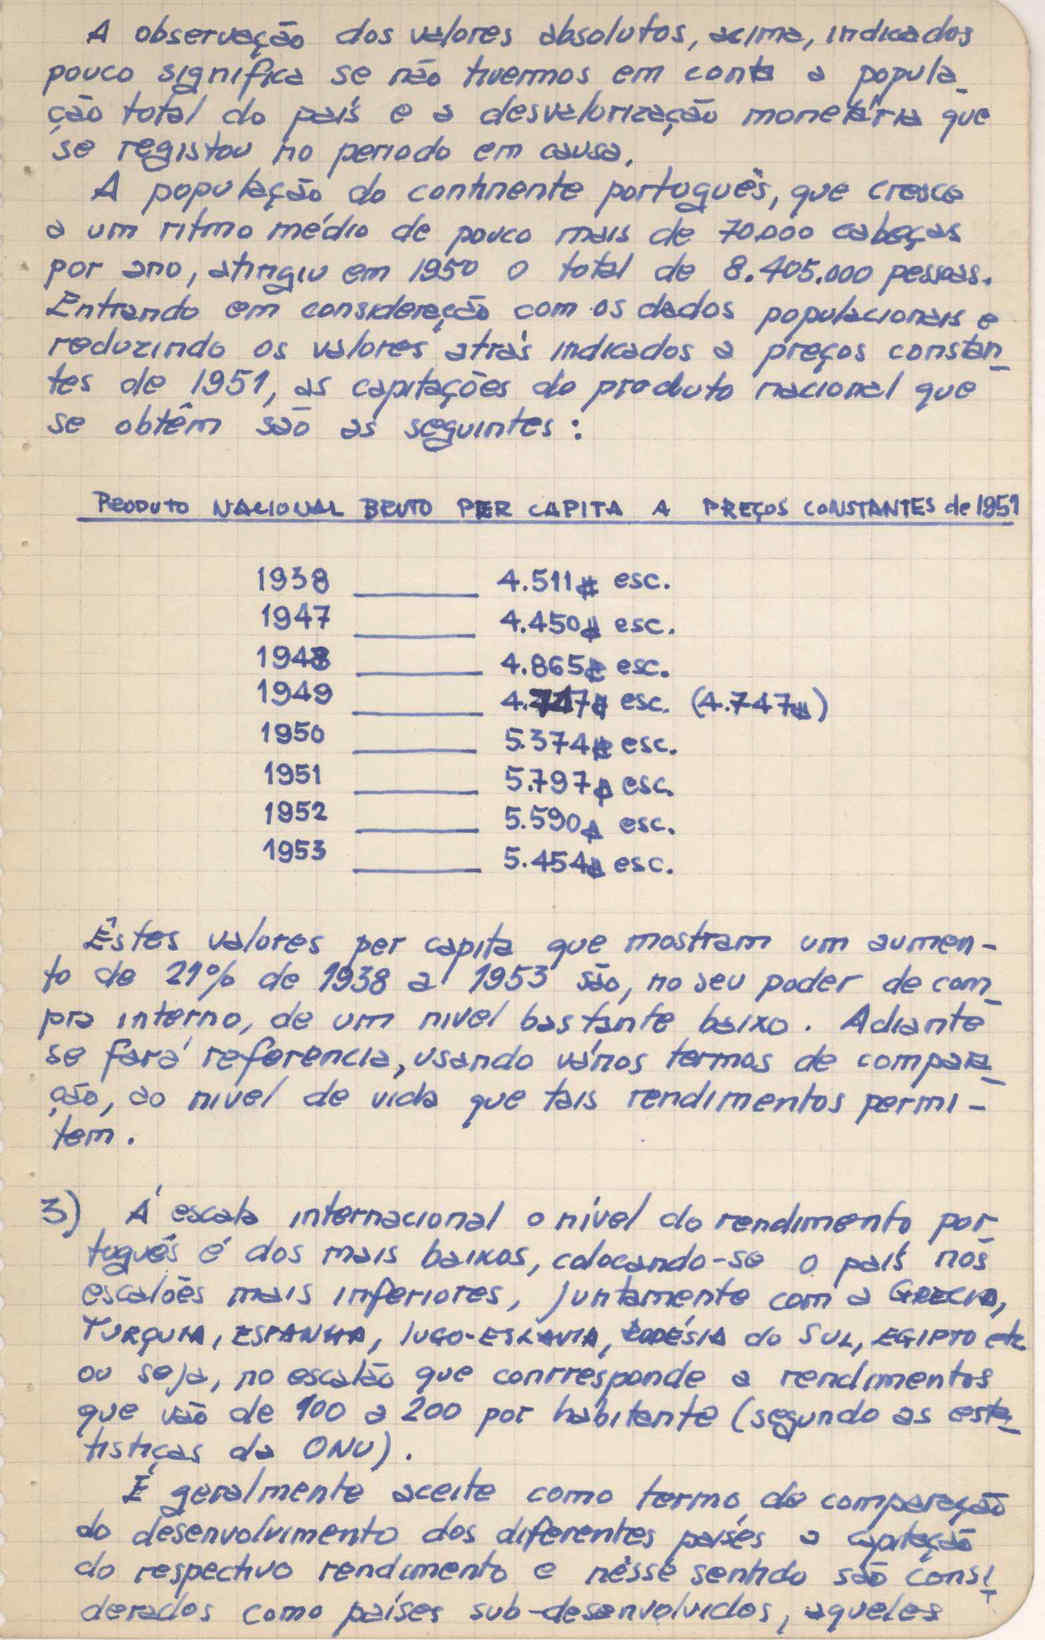 A observação dos valores absolutos, acima, indicados
pouco significa se não tivermos em conta a popula_
ção total do país e a desvalorização monetária que
se registou no periodo em causa.
A população do continente português, que cresce
a um ritmo médio de pouco mais de 70.000 cabeças
por ano, atingiu em 1950 o total de 8.405.000 pessoas.
Entrando em consideração com os dados populacionais e
reduzindo os valores atrás indicados a preços constan_
tes de 1951, as capitações do produto nacional que
se obtêm são as seguintes:
PRODUTO NACIONAL BRUTO PER CAPITA A PREÇOS CONSTANTES de 1951
1938 ______ 4.511$ esc.
1947 ______ 4.450$ esc.
1948 ______ 4.865$ esc.
1949 ______ 4.747$ esc. (4.747$)
1950 ______ 5.374$ esc.
1951 ______ 5.797$ esc.
1952 ______ 5.590$ esc.
1953 ______ 5.454$ esc.
Êstes valores per capita que mostram um aumen-
to de 21% de 1938 a 1953 são, no seu poder de com_
pra interno, de um nivel bastante baixo. Adiante
se fará referencia, usando vários termos de compara_
ção, ao nivel de vida que tais rendimentos permi-
tem.
3) Á escala internacional o nível do rendimento por
tuguês é dos mais baixos, colocando-se o país nos
escalões mais inferiores, juntamente com a GRECIA,
TURQUIA, ESPANHA, IUGO-ESLAVIA, RODÉSIA do SUL, EGIPTO etc
ou seja, no escalão que conrresponde a rendimentos
que vão de 100 a 200 por habitante (segundo as esta_
tistiças da ONU).
É geralmente aceite como termo de comparação
do desenvolvimento dos diferentes países a capitação
do respectivo rendimento e nêsse sentido são consi_
derados como países sub-desenvolvidos, aqueles